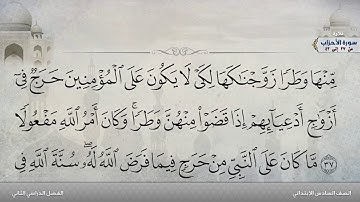 تلاوة
سورة الأحزاب
من ٣٧ إلى ٤٣
مِّنْهَا وَطَرًا زَوَّجْنَٰكَهَا لِكَىْ لَا يَكُونَ عَلَى ٱلْمُؤْمِنِينَ حَرَجٌ فِىٓ
أَزْوَٰجِ أَدْعِيَآئِهِمْ إِذَا قَضَوْا۟ مِنْهُنَّ وَطَرًا ۚ وَكَانَ أَمْرُ ٱللَّهِ مَفْعُولًا
٣٧ مَّا كَانَ عَلَى ٱلنَّبِىِّ مِنْ حَرَجٍ فِيمَا فَرَضَ ٱللَّهُ لَهُۥ ۖ سُنَّةَ ٱللَّهِ فِى
الصف السادس الابتدائي
الفصل الدراسي الثاني